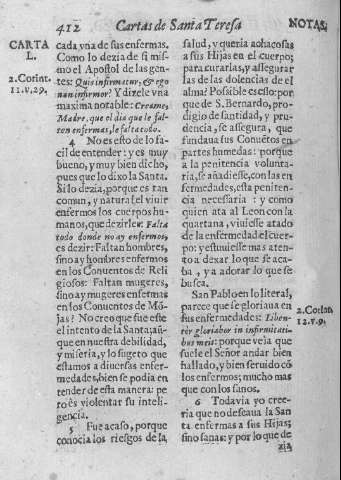 412 Cartas de Santa Teresa NOTAS.
CARTA
L.
2. Corint.
11. v. 29.
cada vna de sus enfermas.
Como lo dezia de si mismo
el Apostol de las gentes:
Quis infirmatur, & ego
non infirmor? Y dizele vna
maxima notable: Creame,
Madre, que el dia que le falten
enfermas, le falta todo.
4 No es esto de lo facil
de entender: y es muy
bueno, y muy bien dicho,
pues que lo dixo la Santa.
Si lo dezia, porque es tan
comun, y natural el viuir
enfermos los cuerpos humanos,
que dezirle: Falta
todo donde no ay enfermos,
es dezir: Faltan hombres,
sino ay hombres enfermos
en los Conuentos de Religiosos:
Faltan mugeres,
sino ay mugeres enfermas
en los Conuentos de Mõjas?
No creo que fue este
el intento de la Santa; aũque
en nuestra debilidad,
y miseria, y lo sugeto que
estamos a diuersas enfermedades,
bien se podia entender
de esta manera: pero
es violentar su inteligencia.
5 Fue acaso, porque
conocia los riesgos de la
salud, y queria
a sus Hijas en el cuerpo;
para curarlas, y assegurarlas
de las dolencias de el
alma? Possible es ello: porque
de S. Bernardo, prodigio
de santidad, y prudencia,
se assegura, que
fundaua sus Conuẽtos en
partes humedas: porque
a la penitencia voluntaria,
se añadiesse, con las enfermedades,
esta penitencia
necessaria: y como
quien ata al Leon con la
quartana, viuiesse atado
de la enfermedad el cuerpo:
y estuuiesse mas atento
a dexar lo que se acaba,
y a adorar lo que se
busca.
San Pablo en lo literal,
parece que se gloriaua en
sus enfermedades: Libenter
gloriabor in infirmitatibus
meis: porque veìa que
suele el Señor andar bien
hallado, y bien seruido cõ
los enfermos; mucho mas
que con los sanos.
6 Todavia yo creeria
que no deseaua la Santa
enfermas a sus Hijas;
sino sanas: y por lo que dezia
2. Corint.
12. v. 9.